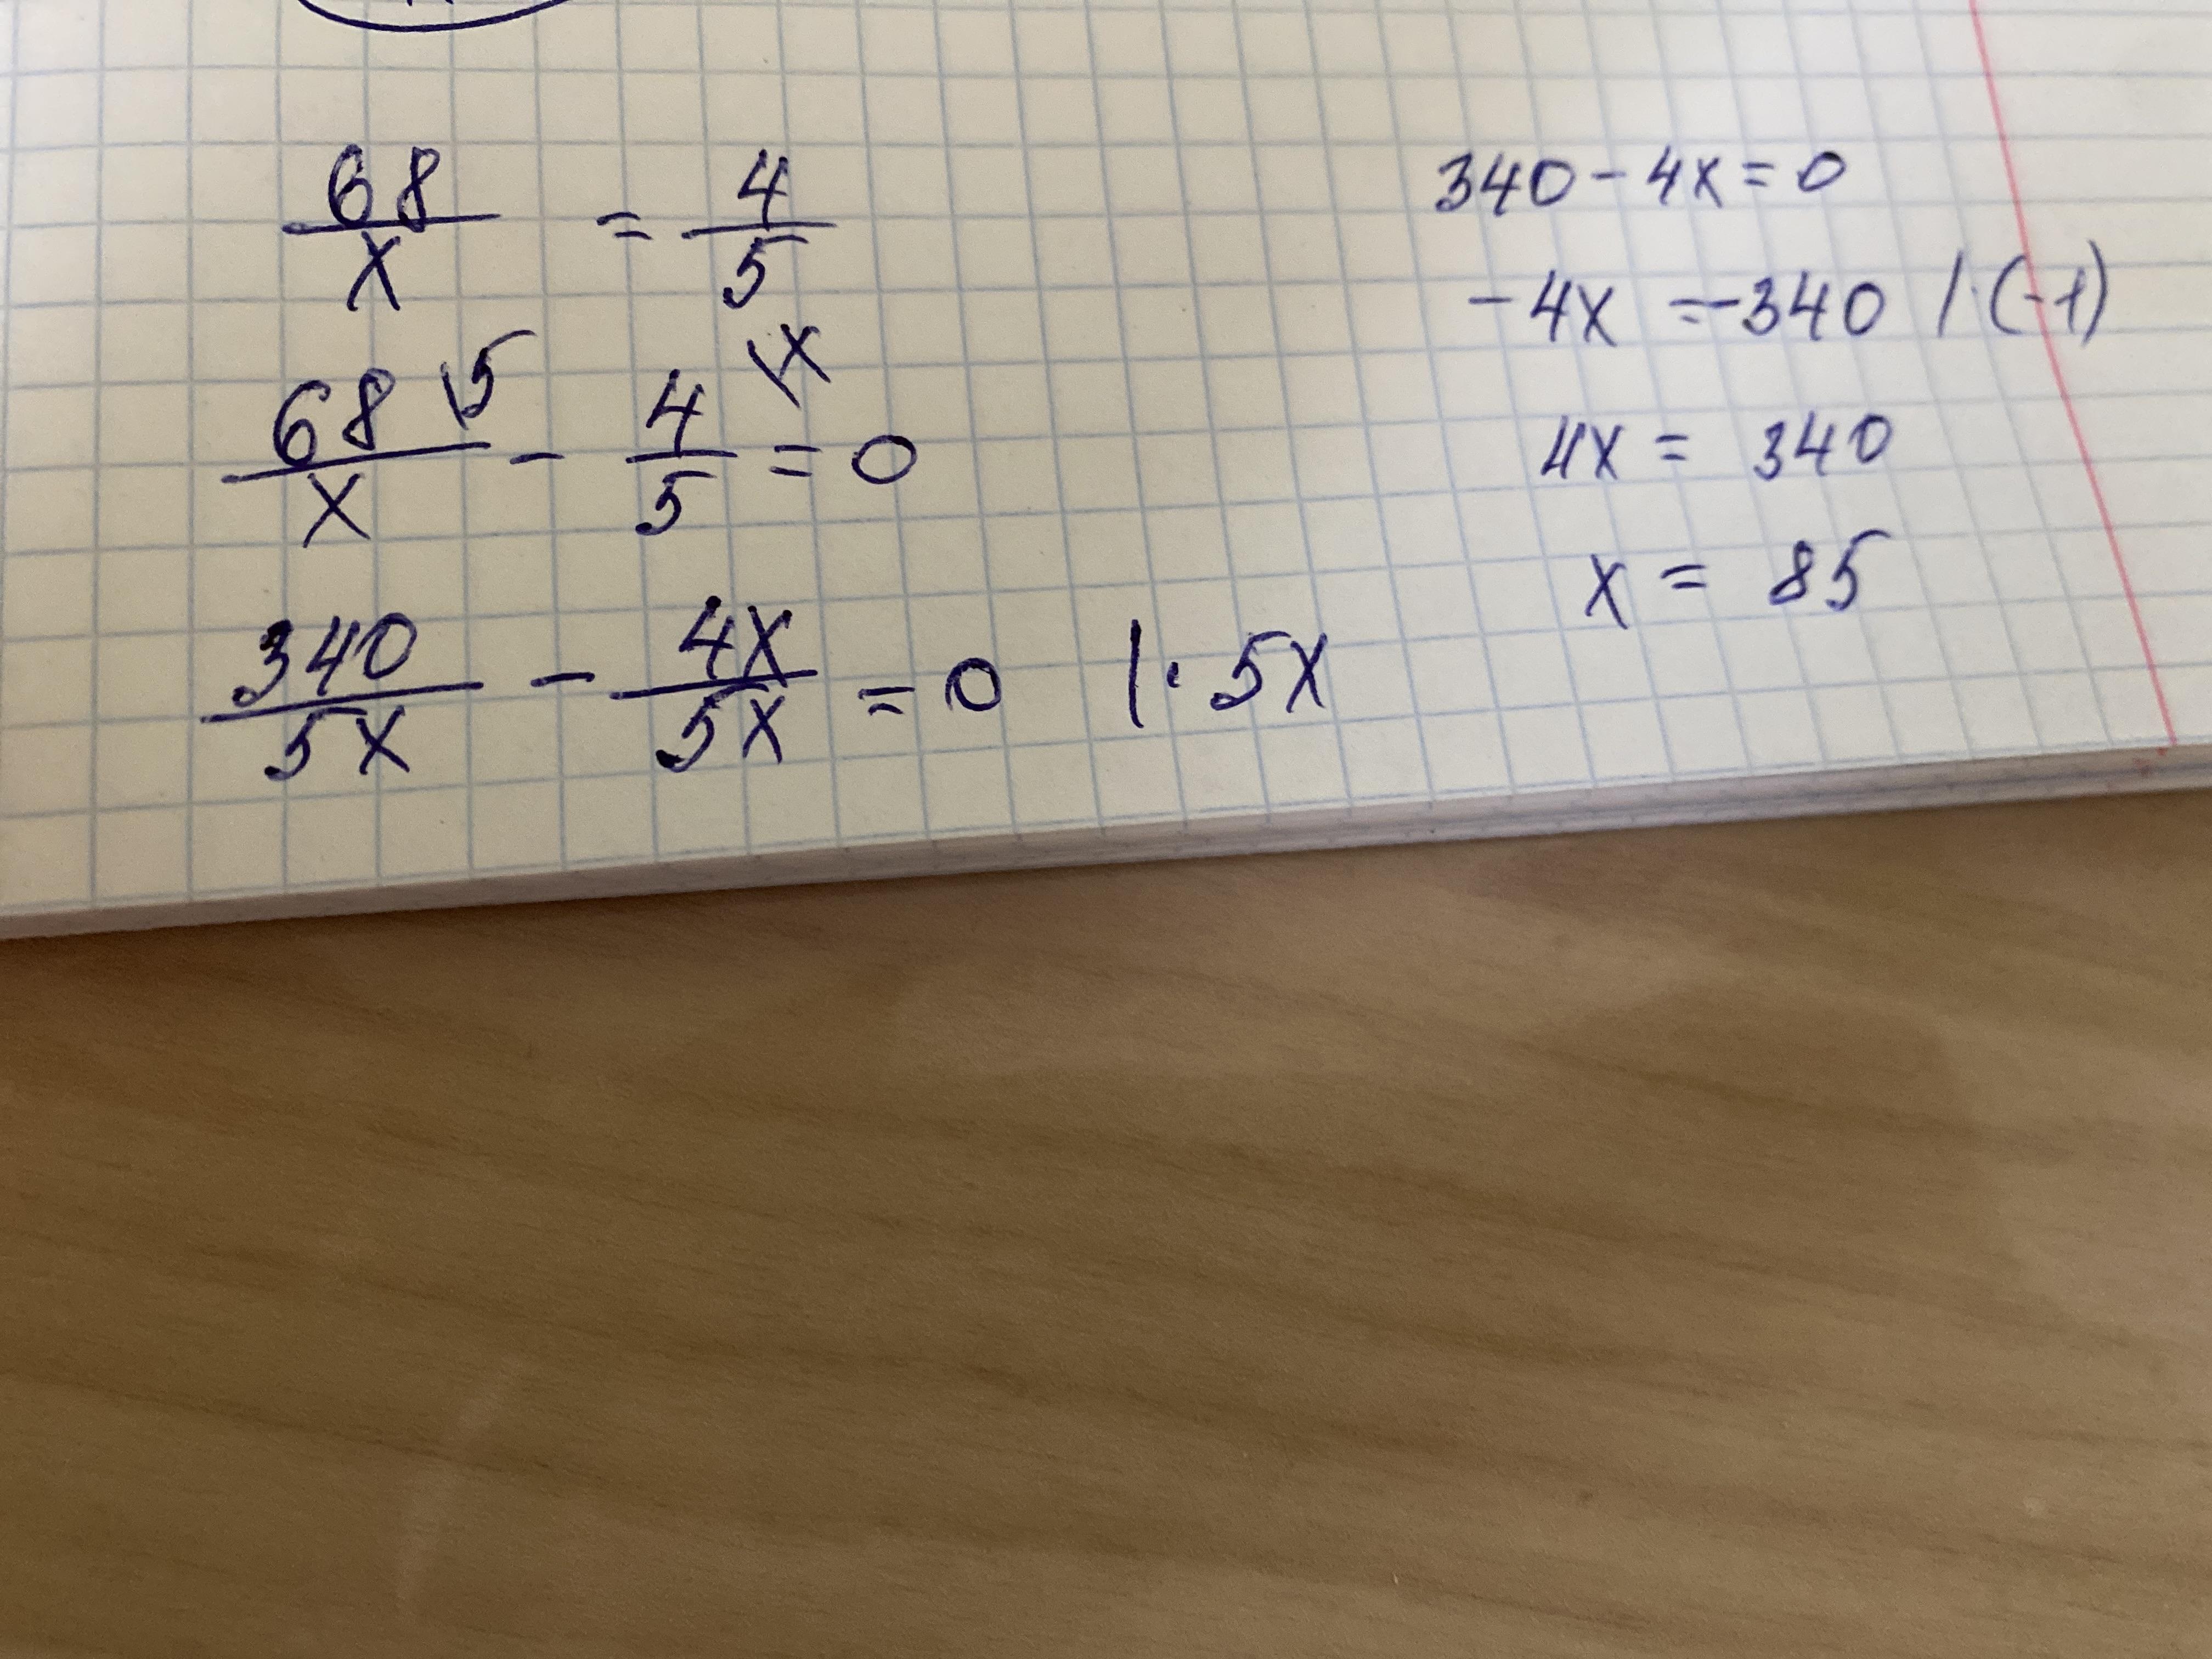 68/x = 4/5
68\5/x - 4\x/5 = 0
340/5x - 4x/5x = 0 |· 5x
340 - 4x = 0
-4x = -340 /·(-1)
4x = 340
x = 85